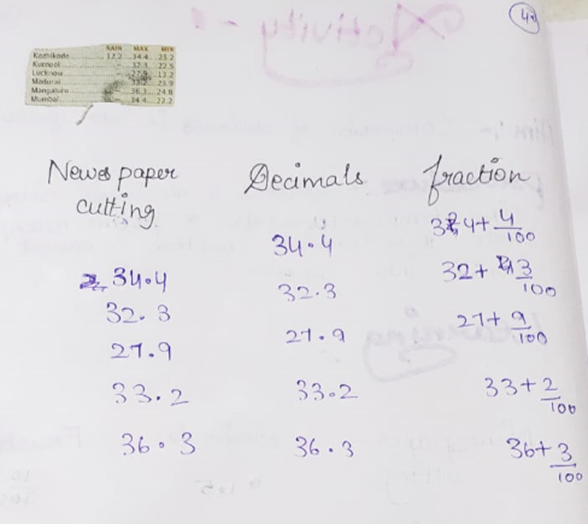 4
RAIN MAX MIN
Kozhikode 12.2 34.4 25.2
Kurnool 32.3 22.5
Lucknow 27.9 13.2
Madurai 33.2 23.9
Mangaluru 36.3 24.8
Mumbai 34.4 22.2
Newspaper Decimals fraction
cutting
34.4 34.4 34+4/100
32.3 32.3 32+3/100
27.9 27.9 27+9/100
33.2 33.2 33+2/100
36.3 36.3 36+3/100